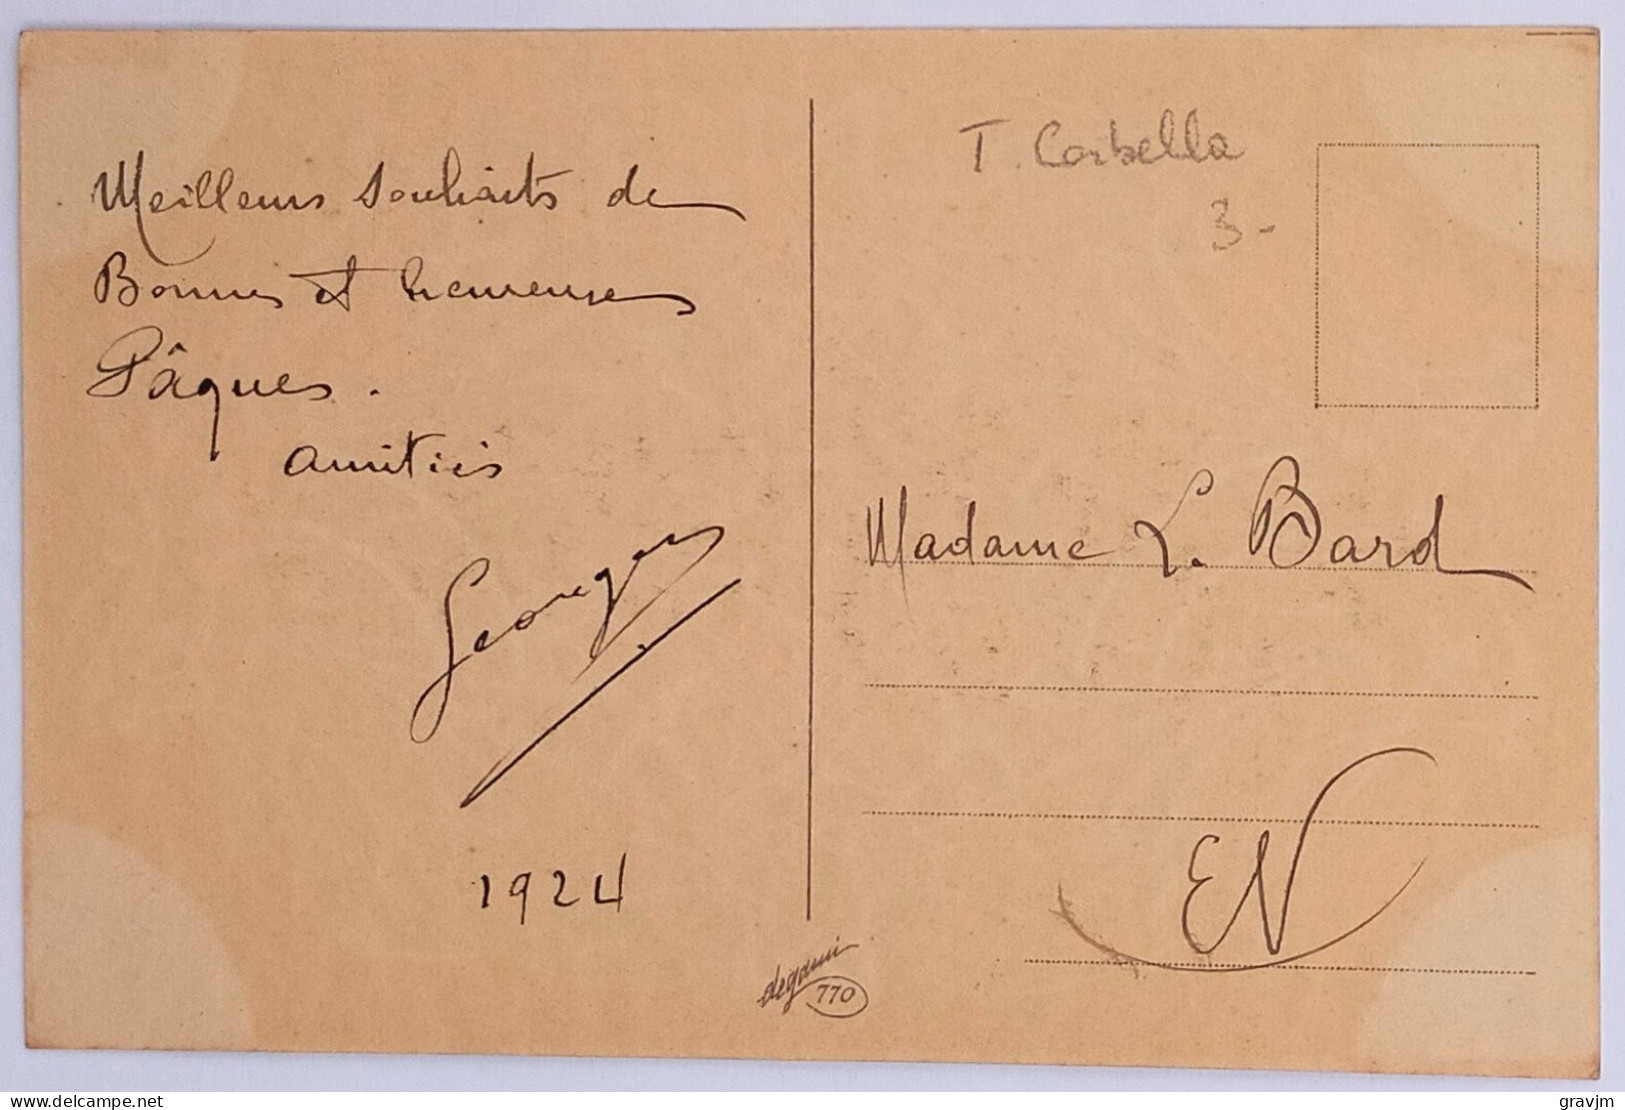 Meilleurs souhaits de
Bonnes et heureuses
Pâques.
amitiés
Georges
1924
T. Corbella
3 -
Madame L. Bard
EV
degami
770
www.delcampe.net
gravjm